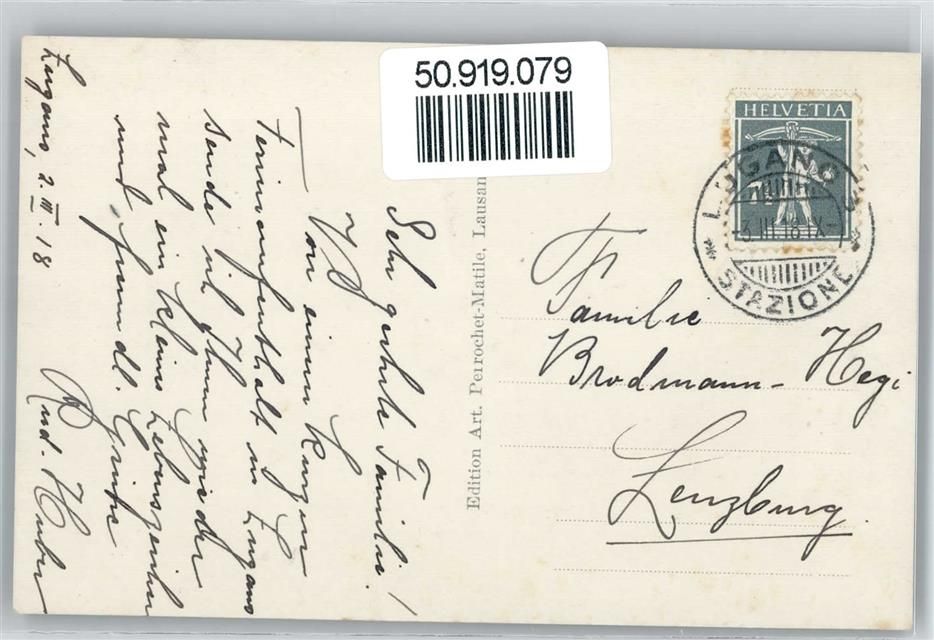 50.919.079
HELVETIA
7½
LUGANO
-3.III.18.IX-
STAZIONE
Edition Art. Perrochet-Matile, Lausan
Lugano, 2. III. 18
Sehr geehrte Familie!
Von einem kurzen
Ferienaufenthalt in Lugano
sende ich Ihnen wieder
mal ein kleines Lebenszeichen
und freundl. Grüsse
Rud. Huber
Familie
Brodmann-Hegi
Lenzburg.